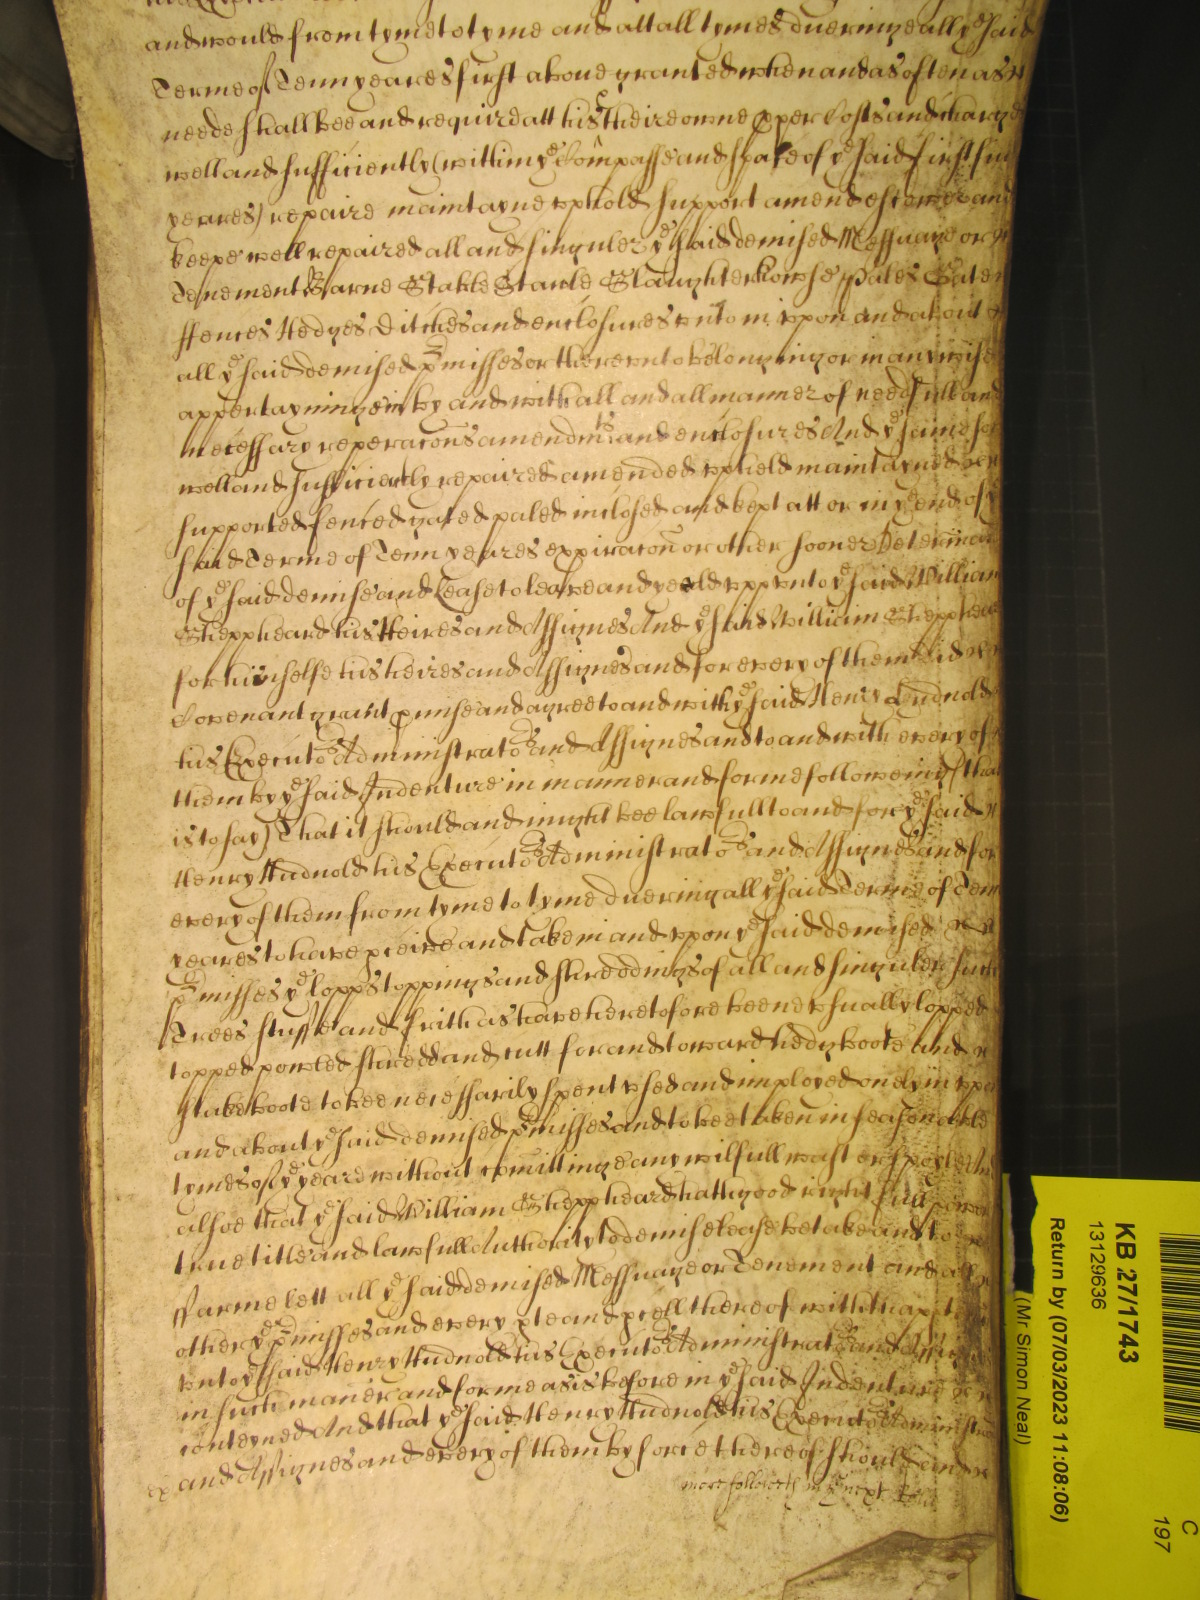 and would from tyme to tyme and att all tymes dueringe all ye said
Terme of Tenn yeares first above granted when and as often as
neede shall bee and require att his & theire owne proper Costs and
well and sufficiently (within ye Compasse and space of ye said first
yeares) repaire maintayne vphold support amend and
keepe well repaired all and singuler ye said demised Messuage or
Tenement Barne Stable Slaughterhowse Pales Gates
ffences Hedges Ditches and enclosures vnto in vpon and about
all ye said demised pmisses or therevnto belonging or in any wise
appertayninge in by and with all and all manner of needfull and
necessary reperacons amendmts and enclosures And ye same soe
well and sufficiently repaired amended vpheld maintayned
supported fenced gated paled inclosed and kept att or in ye end of ye
said Terme of Tenn yeares expiracon or other sooner
of ye said demise and Lease to leave and yeeld vpp vnto ye said William
Sheppheard his Heires and Assignes And ye said William
for himselfe his heires and Assignes and for every of them did
Covenant grant pmise and agree to and with ye said Henry Hudnold
his Executors Administrators and Assignes and to and with every of
them by ye said Indenture in manner and forme followeing (that
is to say) That it should and might bee lawfull to and for ye said
Henry Hudnold his Executors Administrators and Assignes and for
every of them from tyme to tyme dueringe all ye said Terme of Tenn
yeares to have pceive and take in and vpon ye said demised
pmisses ye lopps toppings and shreddings of all and singuler such
Trees stuffe and frith as have heretofore beene vsually lopped
topped powled shredd and cutt for and toward hedgboote and
stakeboote to bee necessarily spent vsed and imployed onely in vpon
and about ye said demised pmisses and to bee taken in seasonable
tymes of ye yeare without comittinge any wilfull wast or
alsoe that ye said William Sheppheard hath good right full power
true title and lawfull Authority to demise lease betake and to
ffarme lett all ye said demised Messuage or Tenement and all
other ye pmisses and every pte and pcell thereof with thapp
vnto ye said Henry Hudnold his Executors Administrators and
in such manner and forme as is before in ye said Indenture
conteyned And that ye said Henry Hudnold his Executors
and Assignes and every of them by force thereof should and
more followeth in ye next
KB 27/1743
13129636
Return by (07/03/2023 11:08:06)
(Mr Simon Neal)
C
197